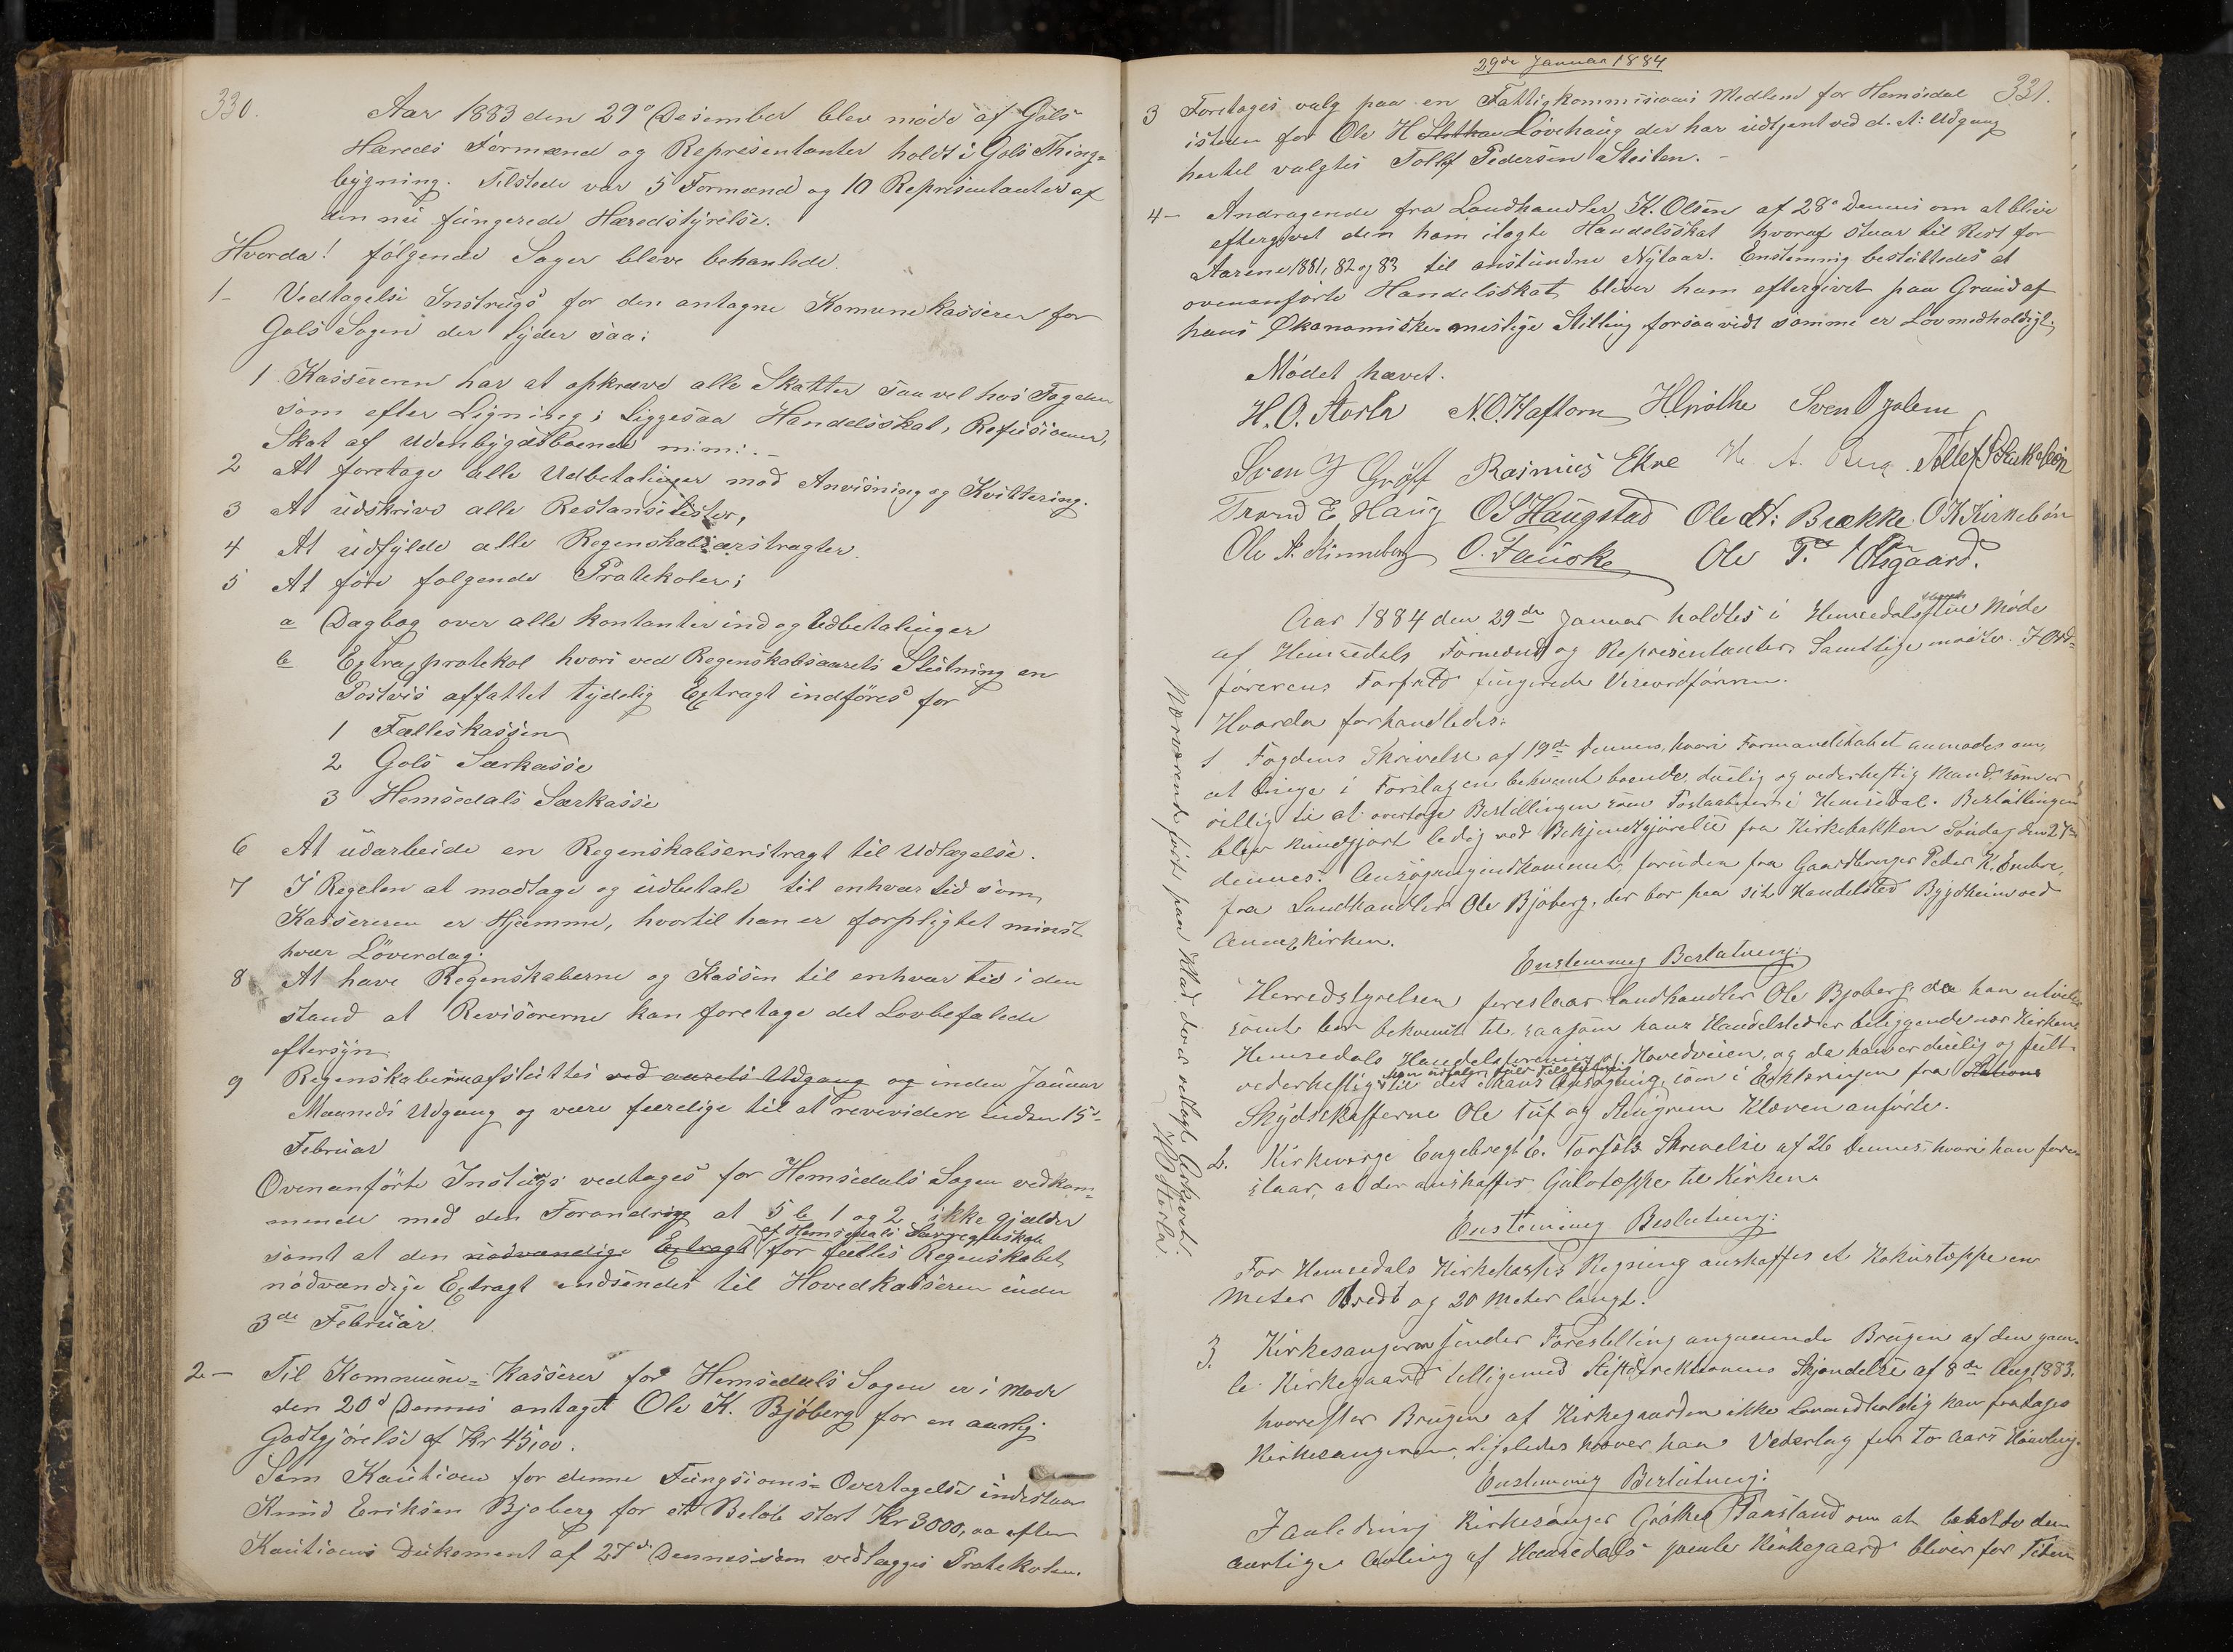 330.
Aar 1883 den 29de Desember blev møde af Gols
Hæreds Formænd og Representanter holdt i Gols Thing-
bygning. Tilstede var 5 Formænd og 10 Representanter af
den nu fungerede Hæredstyrelse.
Hvorda! følgende Sager bleve behanlede.
1- Vedtagelse Instrugs for den antagne Komunekasserer for
Gols Sogen der lyder saa:
1 Kassereren har at opkræve alle Skatter saavel hos Fogden
som efter Ligning; Liggesaa Handelsskat, Refusioner,
Skat af Udenbygdsboende m:m:.-
2 At foretage alle Udbetalinger mod Anvisning og Kvittering.
3 At udskrive alle Restanselister,
4 At udfylde alle Regenskabsexstragter.
5 At føre følgende Protekoler;
a Dagbog over alle kontanter ind og Udbetalinger
b Extraxprotekol hvori ved Regenskabsaarets Slutning en
Postvis affattet tydelig Extragt indføres for
1 Fælleskassen
2 Gols Særkasse
3 Hemsedals Særkasse
6 At udarbeide en Regenskabsexstragt til Udlægelse.
7 I Regelen at modtage og udbetale til enhver tid som
Kassereren er Hjemme, hvortil han er forpligtet minst
hver Löverdag.
8 At have Regenskaberne og Kassen til enhver tid i den
stand at Revisorerne kan foretage det Lovbefalede
eftersyn.
9 Regenskaberne afsluttes ved aarets Udgang og inden Januar
Maaneds Udgang og være færdige til at revividere inden 15de
Februar
Ovenanførte Instrugs vedtages for Hemsedals Sogen vedkom-
mende med den Forandring at 5 b 1 og 2 ikke gjælder
af Hemsedals Særregenskab
samt at den nødvendige Extragt for fælles Regenskabet
nødvændige Extragt indsendes til Hovedkasseren inden
3de Februar.
2- Til Kommune-Kasserer for Hemsedals Sogen er i Møde
den 20de Dennes antaget Ole K. Bjöberg for en aarlig
Godtgjörelse af Kr 45,00.
Som Kaution for denne Fungsions-Overtagelse indestaar
Knud Eriksen Bjoberg for et Beløb stort Kr 3000,00 efter
Kautions Dukement af 27de Dennes som vedlægges Protekolen.
29de Januar 1884
331.
3 Foretages valg paa en Fattigkommisions Medlem for Hemsedal
isteden for Ole H Løvehaug der har udtjent ved d: A: Udgang
hertil valgtes Tollef Pedersen Sleiten.-
4- Andragende fra Landhandler K. Olsen af 28de Dennes om at blive
eftergivet den ham ilagte Handelsskat hvoraf staar til Rest for
Aarene 1881, 82 og 83 til anstundne Nytaar. Enstemmig besluttedes at
ovenanførte Handelsskat bliver ham eftergivet paa Grund af
hans Økanomiske mislige Stilling forsaavidt samme er Lovmedholdigt,
Mödet hævet.
H. O. Storla N. O. Haftorn H Grøthe Sven O jolem
Sven Gröff Rasmus Ekre H. A. Berg Tollef
Trond E Haug O S Haugstad Ole H: Brække O K Kirkebön
Ole A. Kinneberg O. Fauske Ole T.
Aar 1884 den 29de Januar holdtes i Hemsedals Møde
af Hemsedals Formænd og Representanter. Samtlige mødte. I Ord-
førerens Forfald fungerede Viseordföreren.
Hvorda forhandledes:
1 Fogdens Skrivelse af 19de dennes, hvori Formandskabet anmodes om,
at bringe i Forslag en bekvemt boende, duelig og vederheftig Mand, som er
villig til at overtage Bestillingen som Postaabner i Hemsedal. Bestillingen
blev kundgjort ledig ved Bekjendtgjørelse fra Kirkebakken Søndag den 27de
dennes. Ansøgning indkommet, foruden fra Gaardbruger Peder K. Embre,
fra Landhandler Ole Bjöberg, der bor paa sit Handelsted Bygdheim ved
Annexkirken.
Enstemmig Beslutning:
Herredstyrelsen foreslaar Landhandler Ole Bjøberg da han
samt bor bekvemt til, saasom hans Handelsted er beliggende nær Kirken,
Hemsedals Handelsforening og Hovedveien, og da han er duelig og fuldt
vederheftig til det i hans Ansøgning, som i Erklæringen fra Stations
Skydsskafferne Ole Tuf og Klæven anførte.
2. Kirkeværge Engebregt E. Torsøls Skrivelse af 26 dennes, hvori han fore-
slaar, at der anskaffes Gulvtæppe til Kirken.
Enstemmig Beslutning:
For Hemsedals Kirkekasses Regning anskaffes et Kokustæppe en
Meter bredt og 20 Meter langt.
3. Kirkesangeren sender Forestilling angaaende Brugen af den gam-
le Kirkegaard tilligemed Stiftsdirektionens Skjendelse af 8de Aug 1883.
hvorefter Brugen af Kirkegaarden ikke Lovmedholdig kan fratages
Kirkesangeren, ligeledes kræver han Vederlag for to Aars Høavling.
Enstemmig Beslutning:
I anledning Kirkesanger Grøthes Paastand om at beholde den
aarlige Avling af Hemsedals gamle Kirkegaard bliver for Tiden
Nærværende ført paa Klad, der er vedlagt Arkivet.
H O Storla.